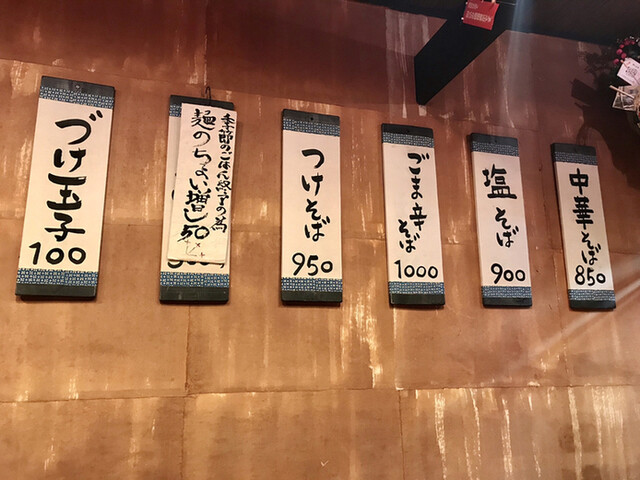 中華そば
850
塩そば
900
ごま辛
そば
1000
つけそば
950
季節のごはん終了の為
麺のちょい増し50
づけ玉子
100